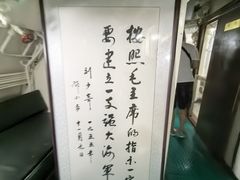 按照毛主席的指示一定
要建立一支强大海军
刘少奇
邓小平
一九五五年
十一月九日